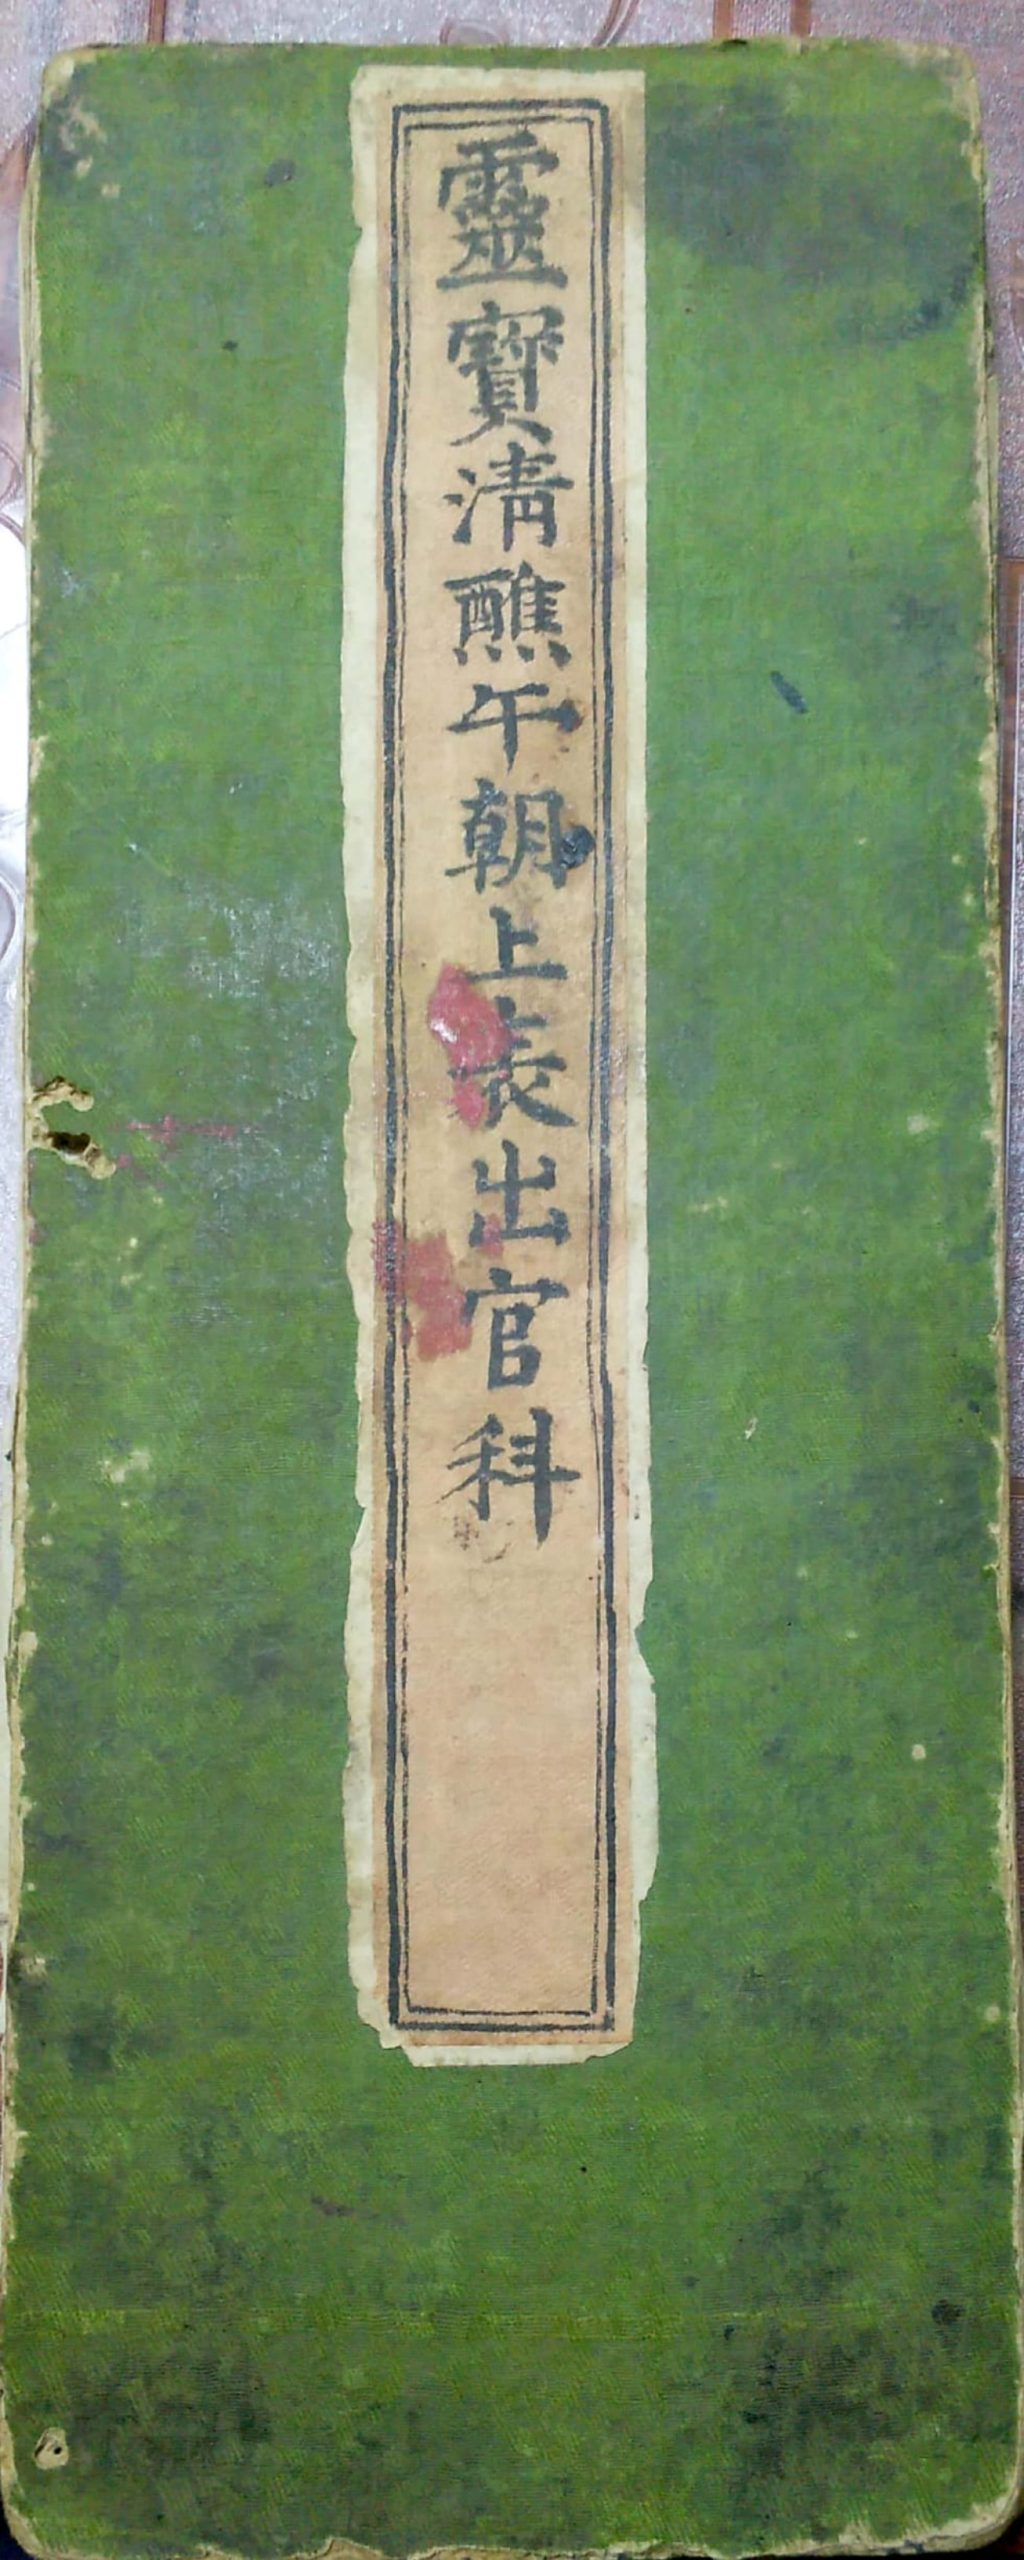 靈寶清醮午朝上表出官科